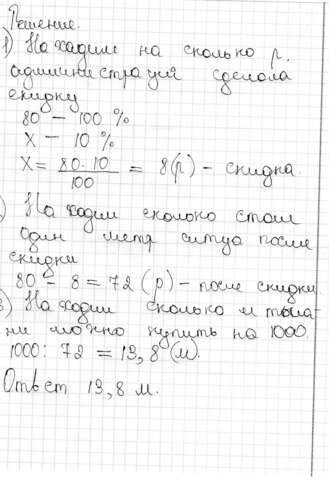 Решение.
1) Находим на сколько р.
администрация сделала
скидку
80 – 100 %
X – 10 %
X = 80·10 / 100 = 8(р) – скидка.
) Находим сколько стоил
один метр ситца после
скидки
80 – 8 = 72 (р) – после скидки
3) Находим сколько м ткани
можно купить на 1000.
1000 : 72 = 13,8 (м).
Ответ 13,8 м.